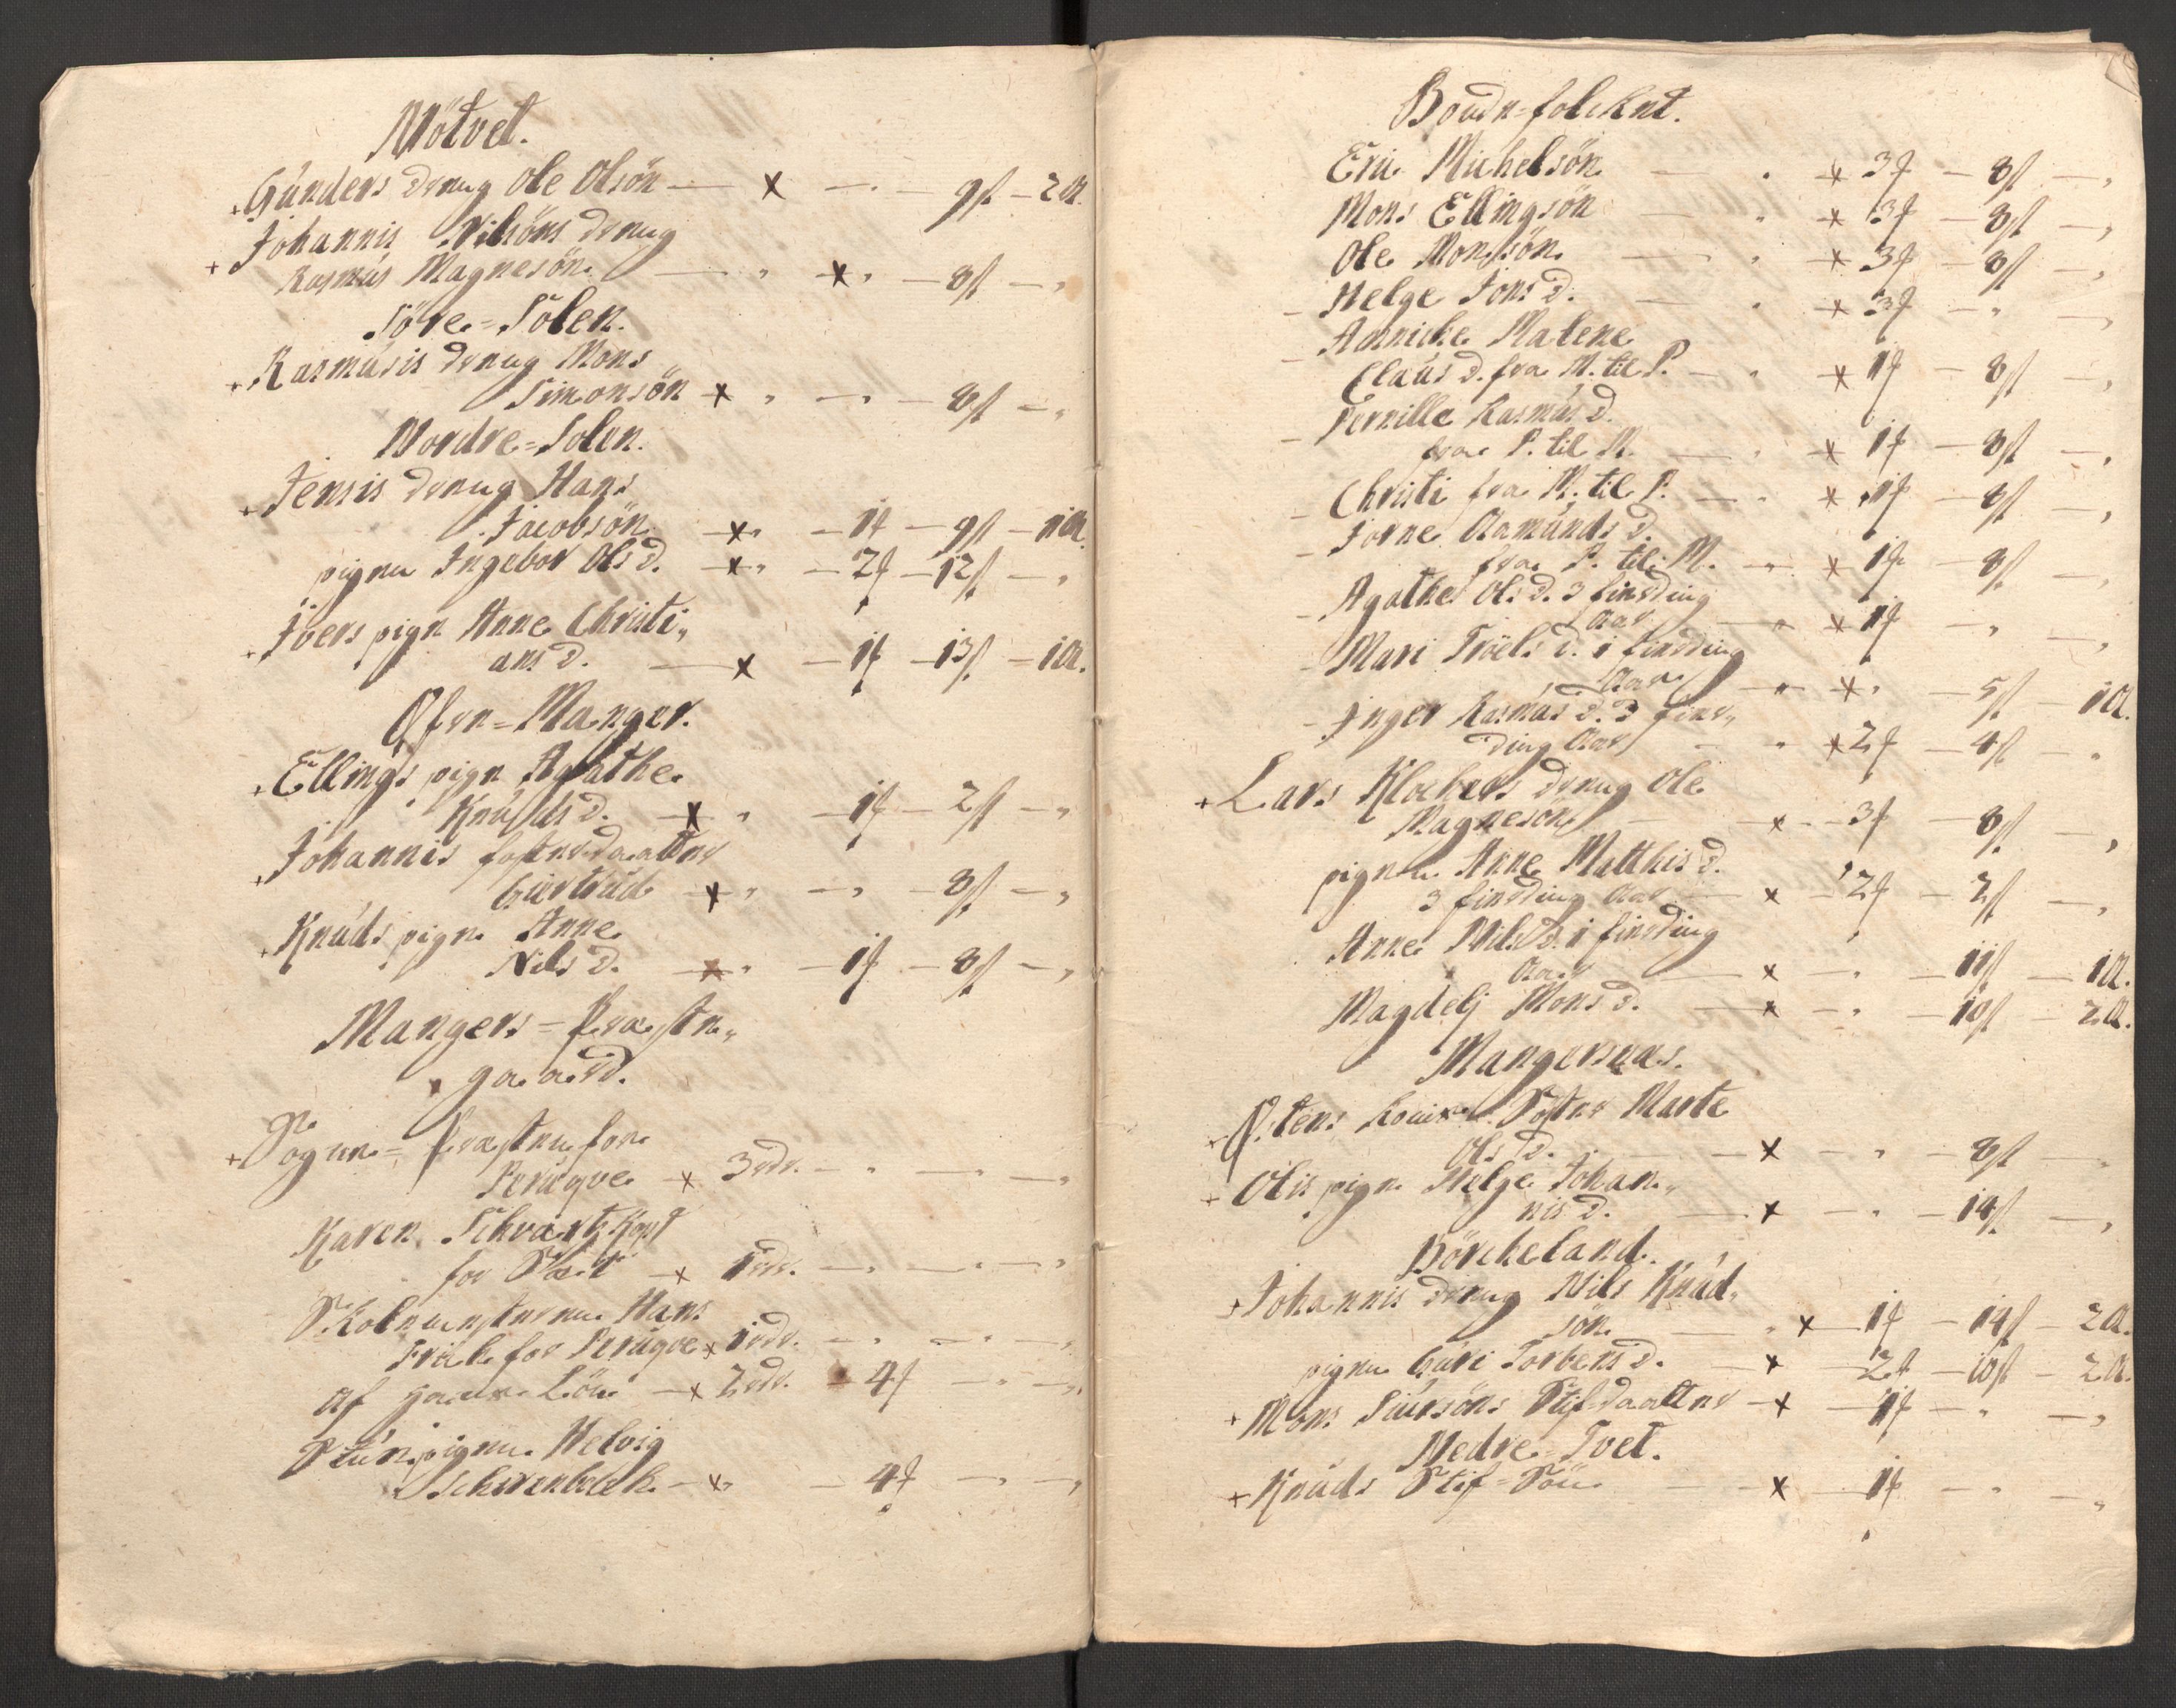 Mötvet.
+ Gunders dreng Ole Olsön — x — - — 9ß — 2a.
Johannis Nilsöns dreng
+ Rasmus Magnesön — " x " — 8ß — "
Söre=Solen.
+ Rasmusis dreng Mons
Simonsön x " — " — 8ß — "
Nordre=Solen.
+ Jensis dreng Hans
Jacobsön — x " — 1f — 9ß — 1a.
pigen Ingebor Ols d. — x " — 2f — 12ß — "
+ Ivers pign Anne Christi„
ans d. — x — 1f — 13ß — 1a.
Öfre=Manger.
+ Ellings pign Agathe
Knuds d. — x " — 1f — 2ß — "
+ Johannis fosterdaatter
Giertrud — x " — " — 8ß — "
+ Knuds pign Anne
Nils d. — x " — 1f — 8ß — "
Mangers=Præste„
gaard.
+ Sogne=Præsten for
Peruqve x 3rdr. — " — "
Karen Schvartzkopf
for Sæt — x 1rdr. — " — " — "
Skolemesteren Hans
Friich for Peruqve x 1rdr. — " — " — "
Af hans Lön — x 2rdr. — 4f — " — "
Stuepigen Helvig
Schrenbech — x " — 4f — " — "
Bonde=folcket.
Eric Michelsön — " x 3f — 8ß — "
Mons Ellingsön — " x 3f — 8ß — "
Ole Monssön — " x 3f — 8ß — "
— Helge Jons d. — " x 3f — " — "
— Annicke Malene
Claus d. fra M. til P. — " x 1f — 8ß — "
— Pernille Rasmus d.
fra P. til M. — " x 1f — 8ß — "
— Christi fra M. til P. — " x 1f — 8ß — "
— Jorne Aamunds d.
fra P. til M. — " x 1f — 8ß — "
— Agathe Ols d. 3 fierding
Aar — " x 1f — " — "
— Mari Tröels d. 1 fierding
Aar — " x " — 5ß — 1a.
— Inger Rasmus d. 3 fier„
ding Aar — " x 2f — 4ß — "
+ Lars Klochers dreng Ole
Magnesön — x — 3f — 8ß — "
pigen Anne Matthis d.
3 fierding Aar — x — 2f — 2ß — "
Anne Nils d. 1 fierding
Aar — x — " — 11ß — 1a.
Magdeli Mons d. — x — " — 10ß — 2a.
Mangersnæs.
+ Östens Foster Marte
Ols d. — x — " — 8ß — "
+ Olis pign Helge Johan„
nis d. — x — " — 14ß — "
Börcheland.
+ Johannis dreng Nils Knud„
sön — " x — 1f — 14ß — 2a.
pigen Guri Torbens d. — x — 2f — 10ß — 2a.
+ Mons Siursöns Stifdaatter — x — 1f — " — "
Nedre=Tvet.
+ Knuds Stif=Sön — x — 1f — " — "